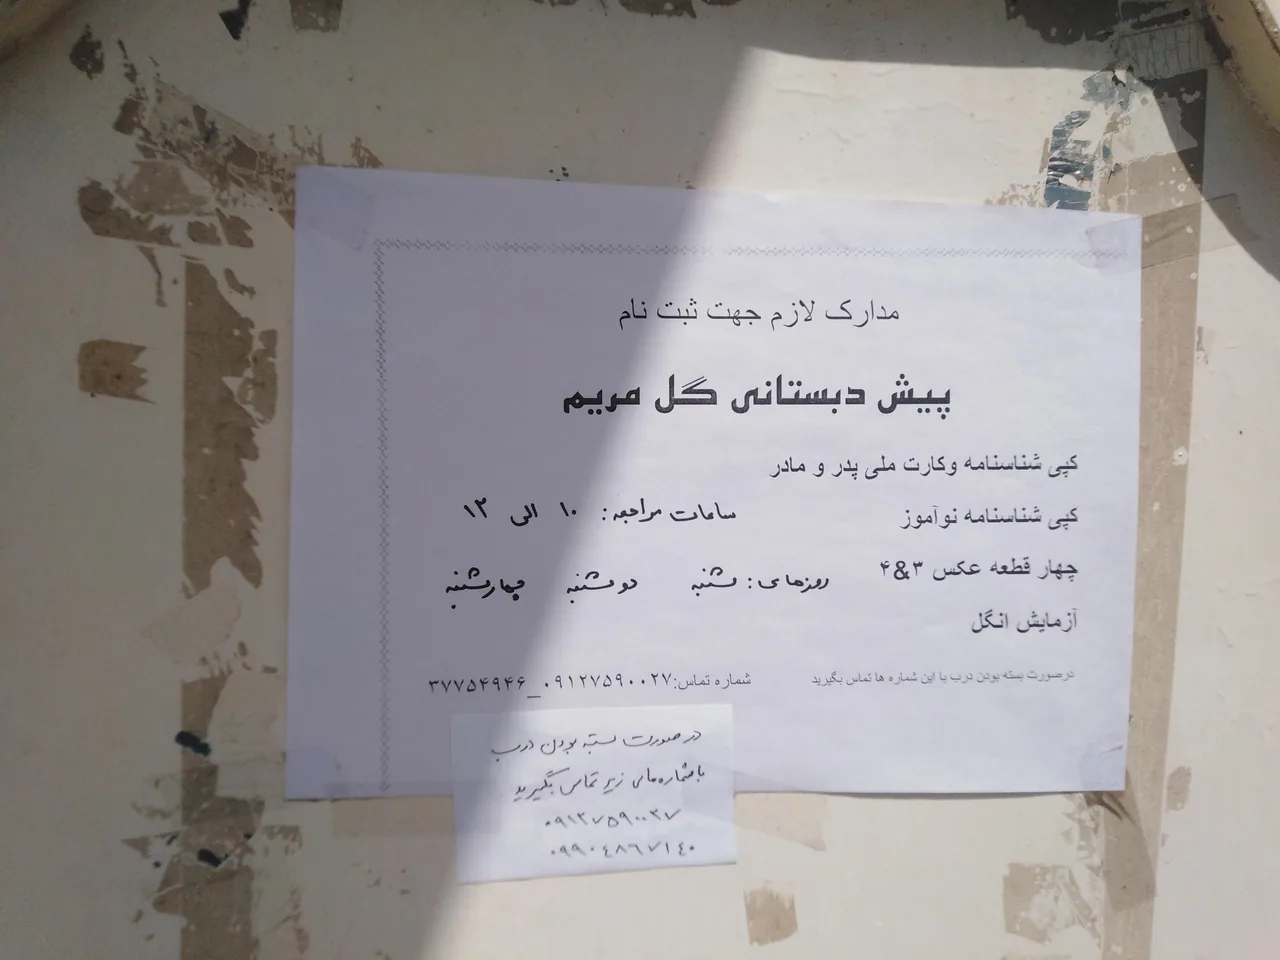 مدارک لازم جهت ثبت نام
پیش دبستانی گل مریم
کپی شناسنامه وکارت ملی پدر و مادر
کپی شناسنامه نوآموز
ساعات مراجعه: ۱۰ الی ۱۲
چهار قطعه عکس ۳&۴
روزهای: شنبه دوشنبه چهارشنبه
آزمایش انگل
درصورت بسته بودن درب با این شماره ها تماس بگیرید
شماره تماس:۰۹۱۲۷۵۹۰۰۲۷_۳۷۷۵۴۹۴۶
در صورت بسته بودن درب
با شماره‌های زیر تماس بگیرید
۰۹۱۲۷۵۹۰۰۲۷
۰۹۹۰۴۸۶۷۱۴۰